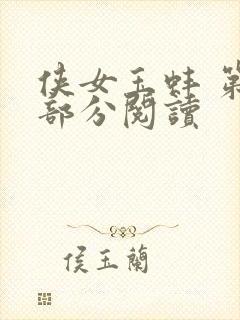 侠女玉蚌 第
部分阅读
侯玉蘭